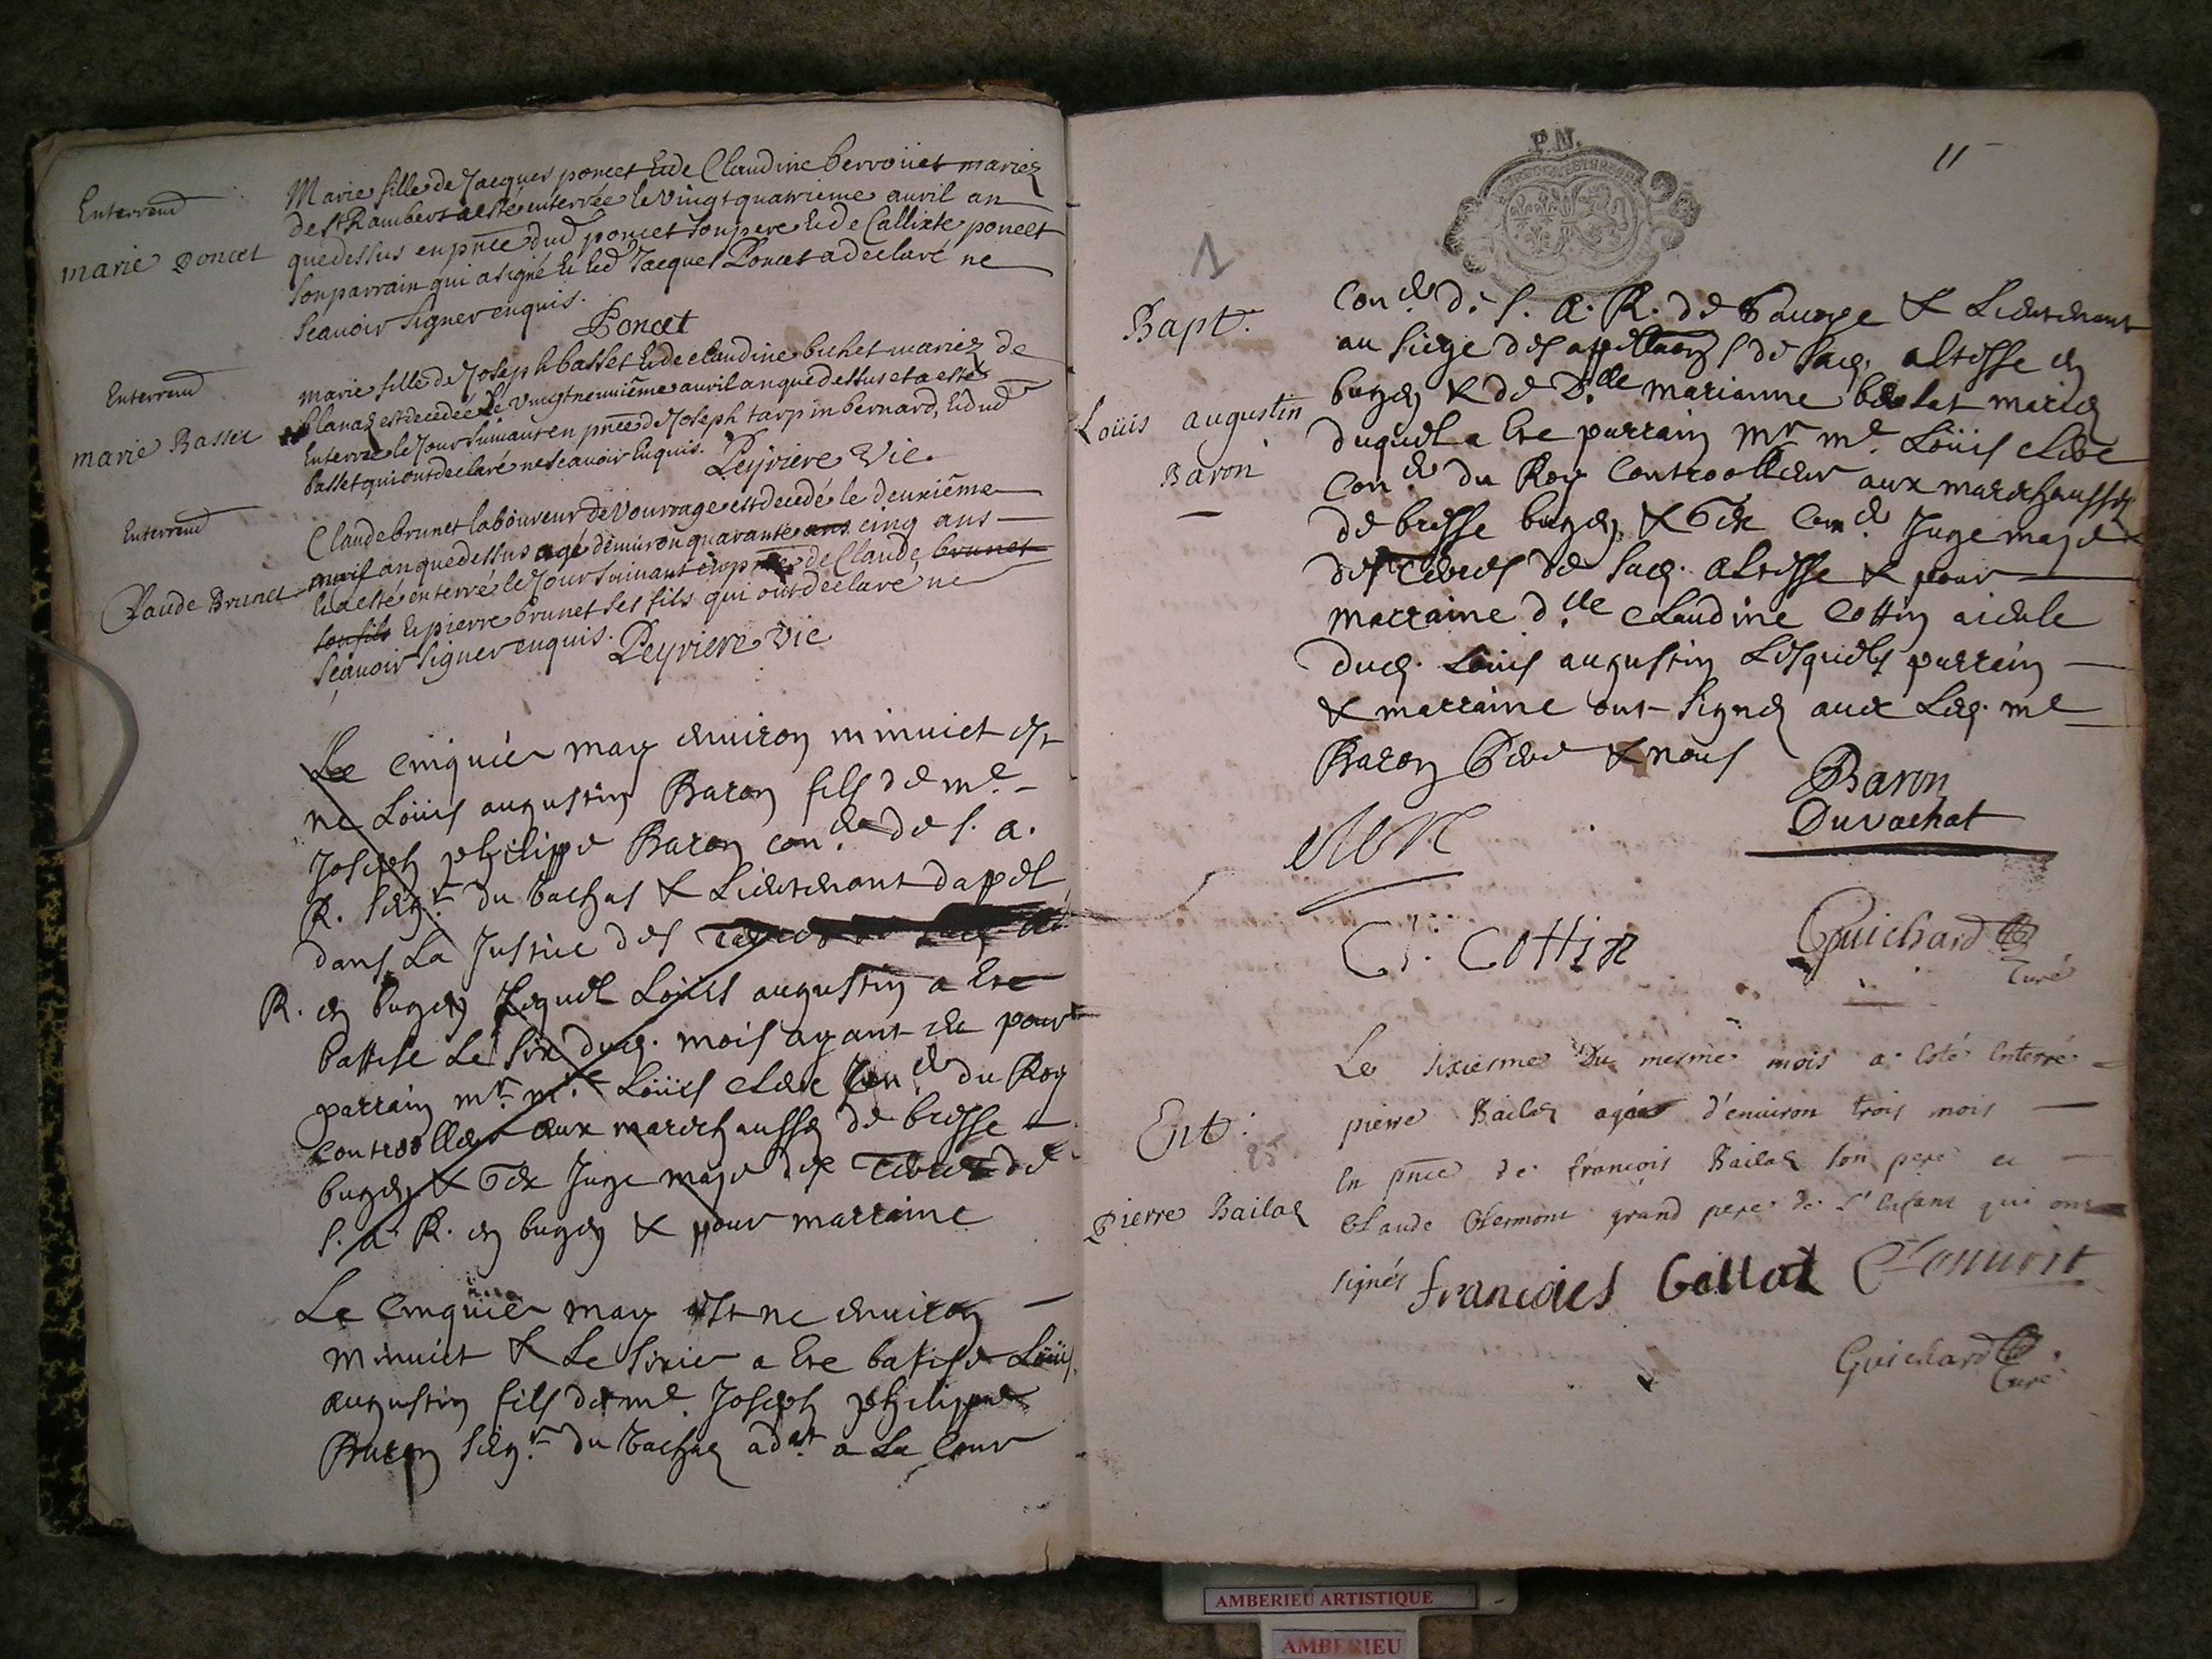 Enterremt
marie Poncet
Marie fille de Jacques poncet et de Claudine berroüet mariez
de st Rambert a esté enterrée le vingt quatrieme auril an
que dessus en pnce dud poncet son pere et de Callixte poncet
son parrain qui a signé et led Jacques Poncet a declaré ne
scauoir signer enquis.
Poncet
Enterremt
marie Basset
marie fille de Joseph basset et de claudine buhet mariez de
blanaz est decedée le vingt neuuiême auril an que dessus et a esté
enterrée le Jour suiuant en pnce de Joseph tarpin bernard, et dud
basset qui ont declaré ne scauoir enquis.
Peyriere Vic.
Enterremt
Claude Brunet
Claude brunet laboureur de Vourage est decedé le deuxiême
may an que dessus agé d'enuiron quarante ans cinq ans
et a esté enterré le Jour suiuant en pnce de Claude brunet
son fils et pierre brunet ses fils qui ont declaré ne
scauoir signer enquis.
Peyriere Vic
Le cinquié may enuiron minuict est
ne Loüis augustin Baron fils de me
Joseph philippe Baron con.er de S. A.
R. seig.r du Vachat & Lieutenant dapel
dans La Justice des
R. en bugey Lequel Loüis augustin a Ete
battise Le six dud. mois ayant eu pour
parrain mr. me Loüis con.er du Roy
controolleur aux marechaussées de bresse
bugey & Gex Juge maje des Terres de
S. A. R. en bugey & pour marraine
Le cinquie may est ne enuiron
minuict & Le sixie a Ete batise Loüis
augustin fils de me. Joseph philippe
Baron seig.r du Vachat ad.at a La Cour
P.N.
11
1
Bapt.
Loüis augustin
Baron
Con.er de S. A. R. de Sauoye & Lieutenant
au siege des appellaons de sad. altesse en
bugey & de D.lle marianne mariez
duquel a Ete parrain Mr me. Loüis
Con.er du Roy Controolleur aux marechaussées
de bresse bugey & Gex Con.er Juge maje
des Terres de sad. altesse & pour
marraine d.lle claudine Cottin aieule
dud. Loüis augustin Lesquels parrain
& marraine ont signé auec Led. me
Baron Pere & nous
Baron
Duvachat
Cl. Cottin
Guichard
Curé
Ent.
25
Pierre Bailaz
Le sixiesme Du mesme mois a esté enterré
pierre Bailaz agé d'enuiron trois mois
en pnce de françois Bailaz son pere et
Claude Clermont grand pere de L'enfant qui ont
signés francoies Baillaz Clermont
Guichard
Curé
AMBERIEU ARTISTIQUE
AMBERIEU